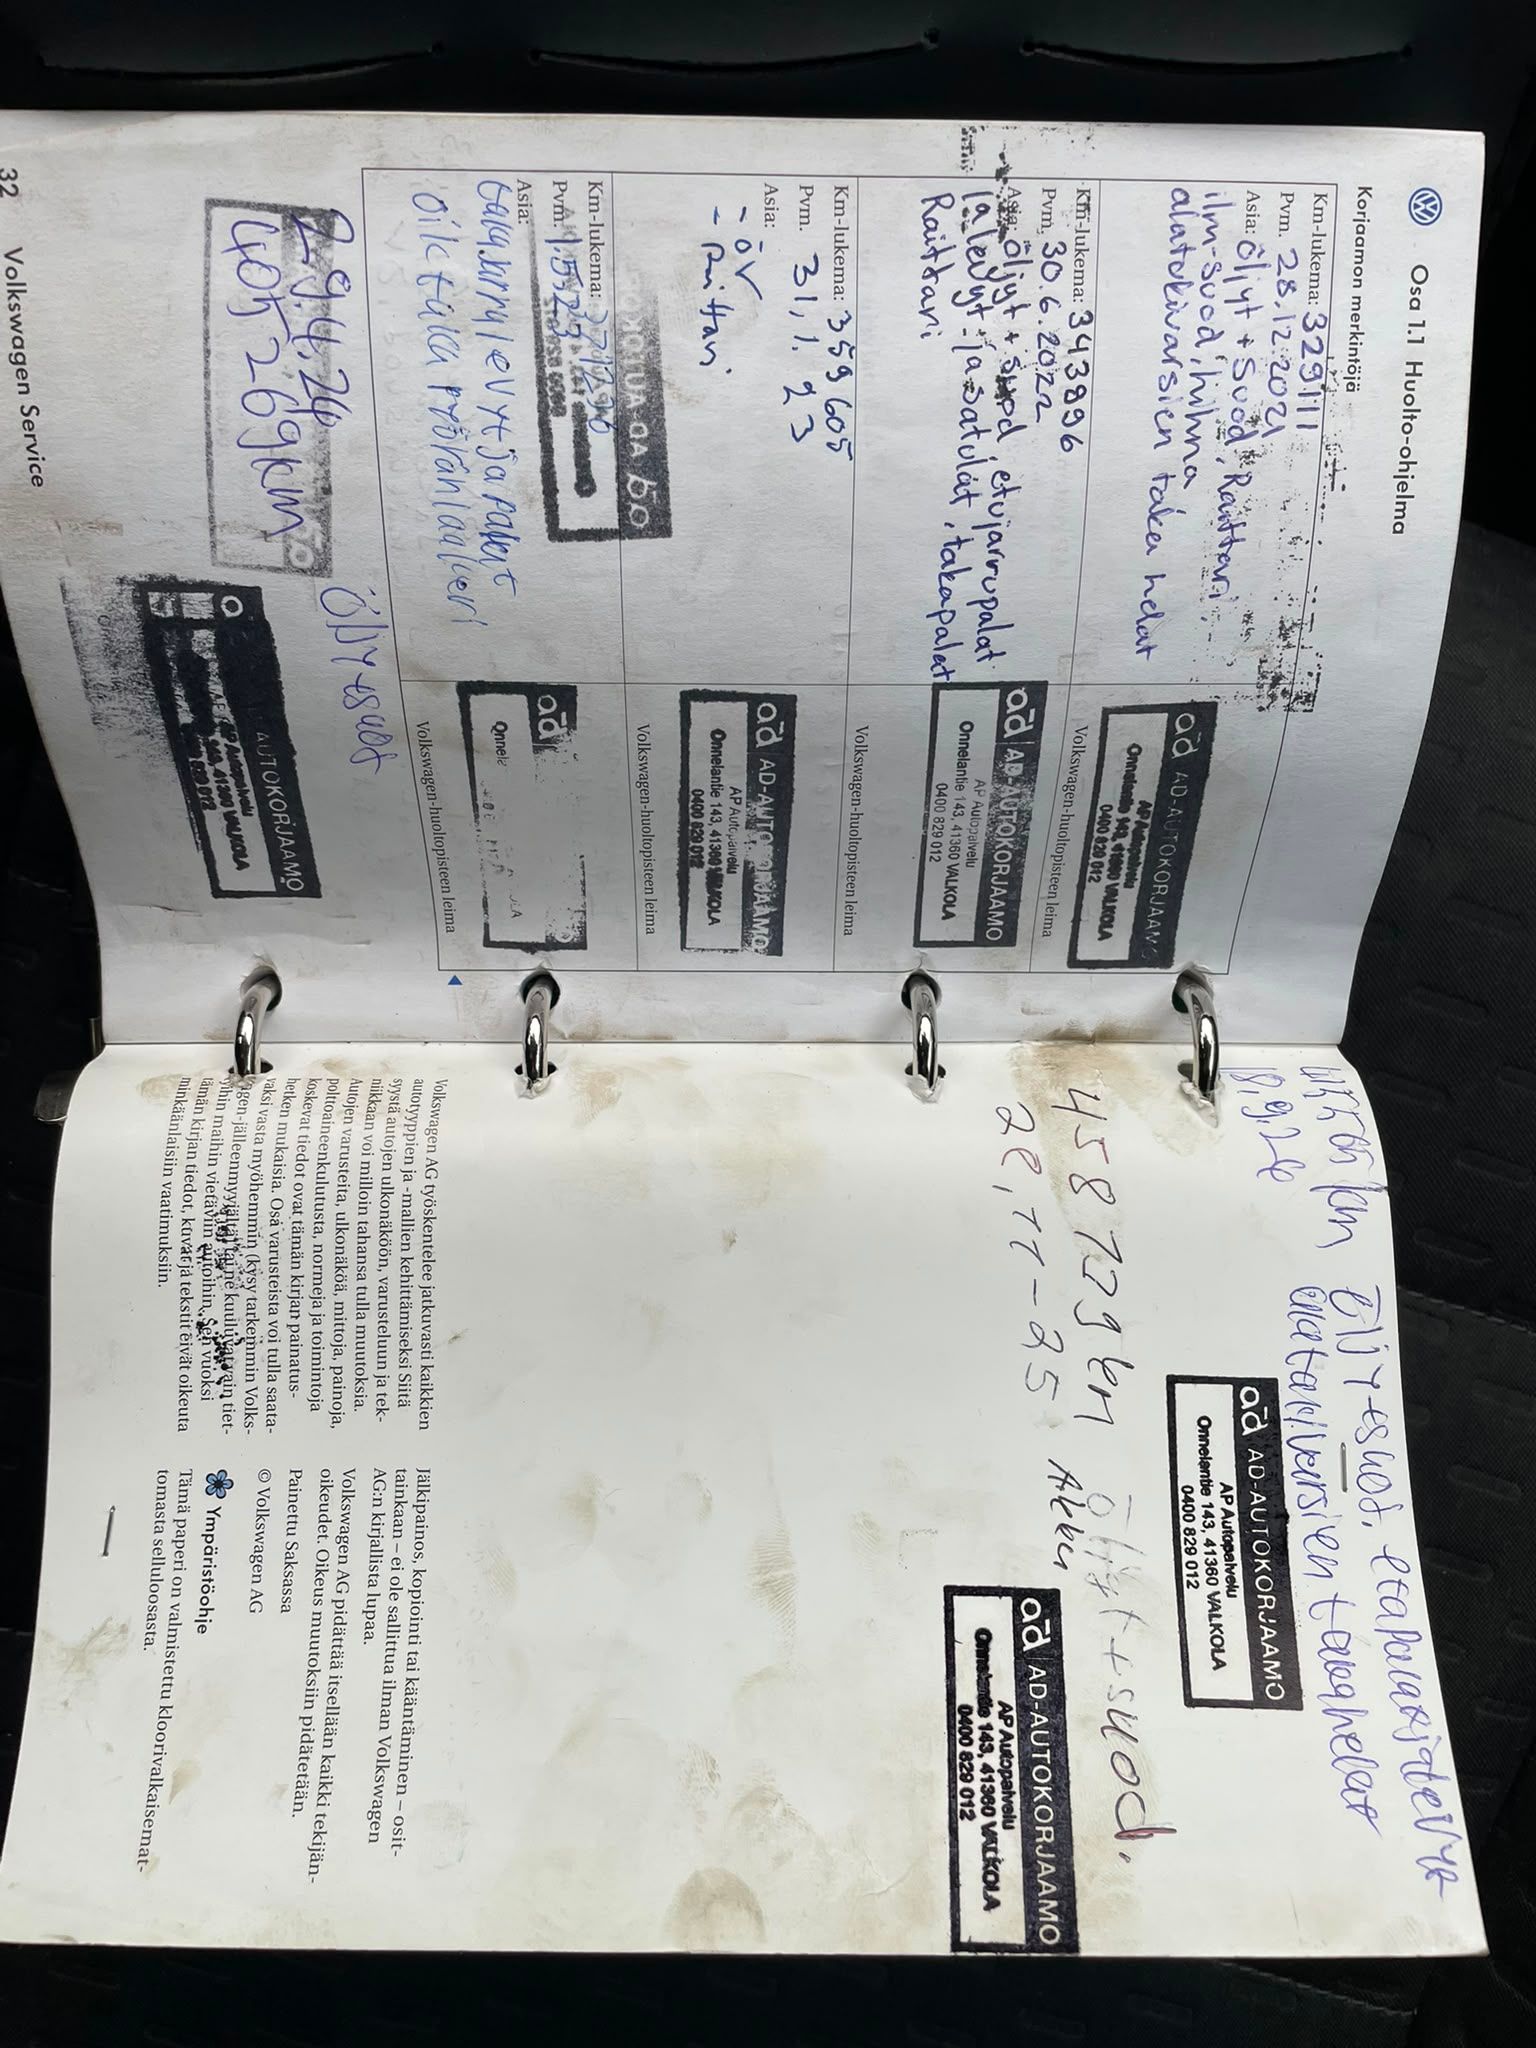 Osa 1.1 Huolto-ohjelma
Korjaamon merkintöjä
Km-lukema: 329111
Pvm. 28.12.2021
Asia: Öljyt + suod, Raittari,
ilm-suod, hihna
alatukivarsien taka helat
ad AD-AUTOKORJAAMO
AP Autopalvelu
Onnelantie 143, 41360 VALKOLA
0400 829 012
Volkswagen-huoltopisteen leima
Km-lukema: 343896
Pvm. 30.6.2022
Asia: Öljyt + suod, etujarrupalat
ja levyt - ja satulat, takapalat
Raittari
ad AD-AUTOKORJAAMO
AP Autopalvelu
Onnelantie 143, 41360 VALKOLA
0400 829 012
Volkswagen-huoltopisteen leima
Km-lukema: 359605
Pvm. 31.1.23
Asia:
- öv
- Raittari
ad AD-AUTOKORJAAMO
AP Autopalvelu
Onnelantie 143, 41360 VALKOLA
0400 829 012
Volkswagen-huoltopisteen leima
Km-lukema:
Pvm.
Asia:
ja palat
oik taka pyöränlaakeri
ad
Volkswagen-huoltopisteen leima
Öljy + suod
km
AUTOKORJAAMO
AP Autopalvelu
VALKOLA
32 Volkswagen Service
km Öljy + suod, etupalat ja levyt
alatukivarsien takahelat
ad AD-AUTOKORJAAMO
AP Autopalvelu
Onnelantie 143, 41360 VALKOLA
0400 829 012
458729 km öljyt + suod.
28,11-25 Akku
ad AD-AUTOKORJAAMO
AP Autopalvelu
Onnelantie 143, 41360 VALKOLA
0400 829 012
Volkswagen AG työskentelee jatkuvasti kaikkien
autotyyppien ja -mallien kehittämiseksi Siitä
syystä autojen ulkonäköön, varusteluun ja tek-
niikkaan voi milloin tahansa tulla muutoksia.
Autojen varusteita, ulkonäköä, mittoja, painoja,
polttoaineenkulutusta, normeja ja toimintoja
koskevat tiedot ovat tämän kirjan painatus-
hetken mukaisia. Osa varusteista voi tulla saata-
vaksi vasta myöhemmin (kysy tarkemmin Volks-
wagen-jälleenmyyjältä) tai ne kuuluvat vain tiet-
tyihin maihin vietäviin autoihin. Sen vuoksi
tämän kirjan tiedot, kuvat ja tekstit eivät oikeuta
minkäänlaisiin vaatimuksiin.
Jälkipainos, kopiointi tai kääntäminen – osit-
tainkaan – ei ole sallittua ilman Volkswagen
AG:n kirjallista lupaa.
Volkswagen AG pidättää itsellään kaikki tekijän-
oikeudet. Oikeus muutoksiin pidätetään.
Painettu Saksassa
© Volkswagen AG
Ympäristöohje
Tämä paperi on valmistettu kloorivalkaisemat-
tomasta selluloosasta.